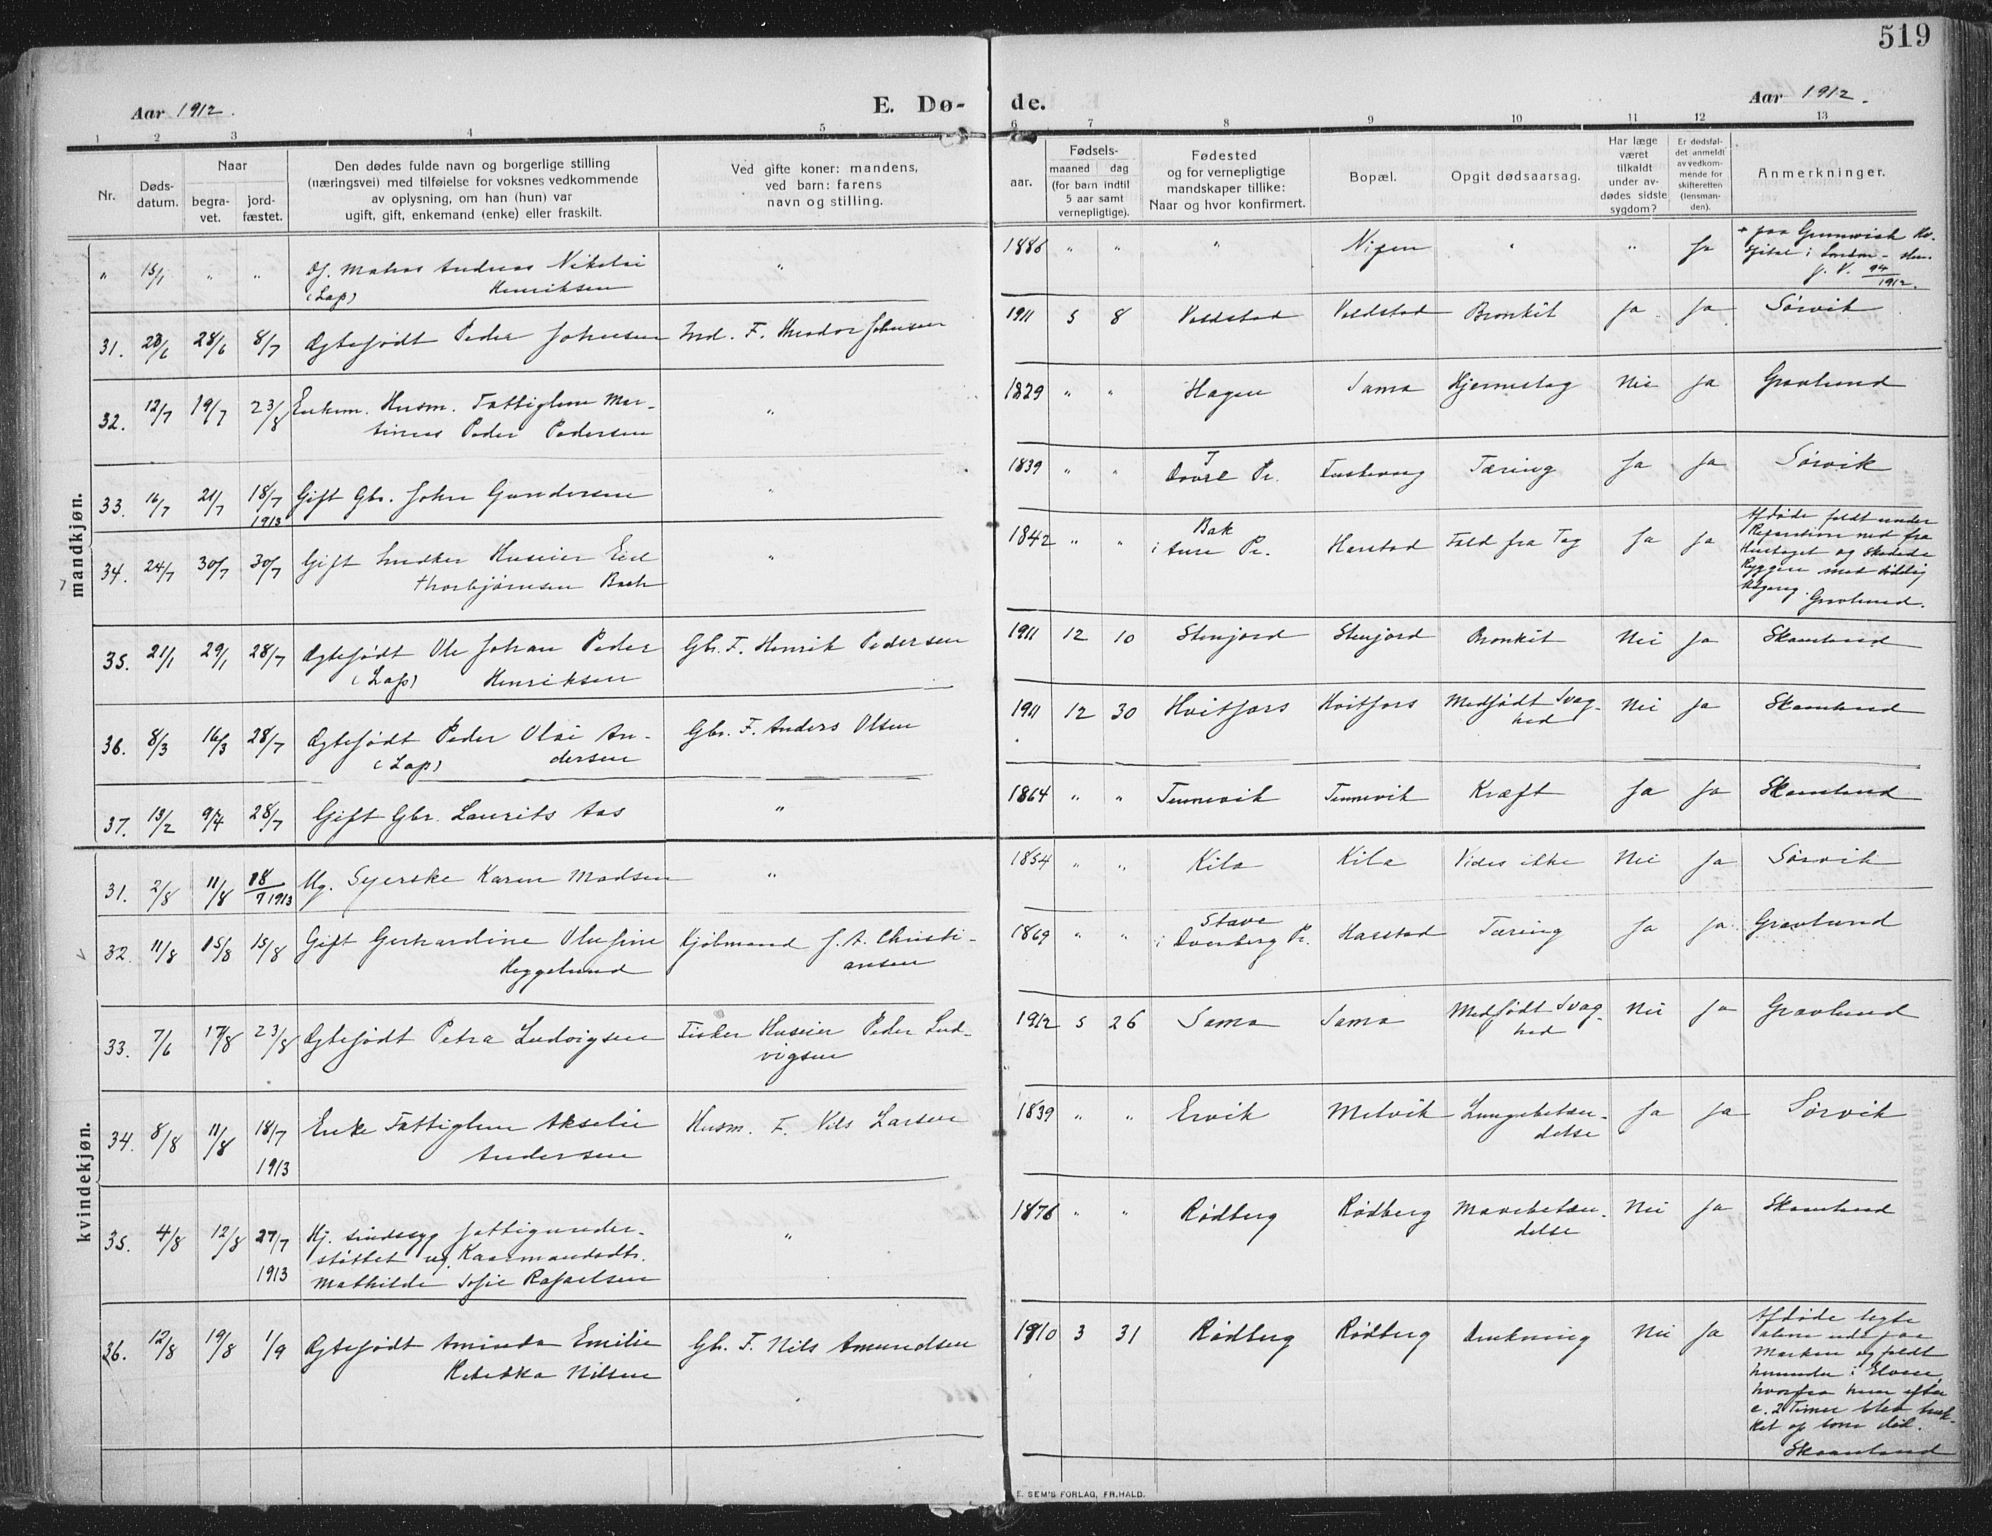 519
Aar 1912.
E. Dø-
de.
Aar 1912.
1 2 3 4 5 6 7 8 9 10 11 12 13
Nr.
Døds-
datum.
Naar
begra-
vet.
jord-
fæstet.
Den dødes fulde navn og borgerlige stilling
(næringsvei) med tilføielse for voksnes vedkommende
av oplysning, om han (hun) var
ugift, gift, enkemand (enke) eller fraskilt.
Ved gifte koner: mandens,
ved barn: farens
navn og stilling.
Fødsels-
aar.
maaned dag
(for barn indtil
5 aar samt
vernepligtige).
Fødested
og for vernepligtige
mandskaper tillike:
Naar og hvor konfirmert.
Bopæl.
Opgit dødsaarsag.
Har læge
været
tilkaldt
under av-
dødes sidste
sygdom?
Er dødsfal-
det anmeldt
av vedkom-
mende for
skifteretten
(lensman-
den).
Anmerkninger.
mandkjøn.
" 15/1 " " Matros Andreas Nikolai " 1886 " " " " " Ja
(Lap) Henriksen
+ paa Greenwich Ho-
spital i London
94/1912.
31. 23/6 28/6 8/7 Ægtefødt Peder Johnsen Ind. F. Theodor Johnsen 1911 5 8 Voldstad Voldstad Bronkit Ja Ja Sørvik
32. 12/7 19/7 23/8 Enkem. Husm. Fattiglem Mar- " 1829 " " Hagen Sama Hjerneslag Nei Ja Gravlund
tinus Peder Pedersen
33. 16/7 21/7 18/7 1913 Gift Gbr. John Gundersen " 1839 " " Pr. Tæring Ja Ja Sørvik
34. 24/7 30/7 30/7 Gift Snedker Huseier " 1842 " " Bak i Aure Pr. Harstad Fald fra Tag Ja Ja
Thorbjørnsen Bach
Afdøde faldt under
Reparation ned fra
Hustaget og skadede
Ryggen med dødelig
Gravlund.
35. 21/1 29/1 28/7 Ægtefødt Ole Johan Peder Gbr. F. Henrik Pedersen 1911 12 10 Stenjord Stenjord Bronkit Nei Ja Skaanland
(Lap) Henriksen
36. 8/3 16/3 28/7 Ægtefødt Peder Olai An- Gbr. F. Anders Olsen 1911 12 30 Hvitfors Hvitfors Medfødt Svag- Nei Ja Skaanland
(Lap) dersen hed
37. 13/2 9/4 28/7 Gift Gbr. Laurits Aas " 1864 " " Tennevik Tennevik Kræft Ja Ja Skaanland
kvindekjøn.
31. 2/8 11/8 18/7 1913 Ug. Syerske Karen Madsen " 1854 " " Kila Kila Vides ikke Nei Ja Sørvik
32. 11/8 15/8 15/8 Gift Gerhardine Olufine Kjøbmand J. A. Christi- 1869 " " Stave i Dverberg Pr. Harstad Tæring Ja Ja Gravlund
Heggelund ansen
33. 7/6 17/8 23/8 Ægtefødt Petra Ludvigsen Fisker Huseier Peder Lud- 1912 5 26 Sama Sama Medfødt Svag- Nei Ja Gravlund
vigsen hed
34. 8/8 11/8 18/7 1913 Enke Fattiglem Akselie Husm. F. Nils Larsen 1839 " " Ervik Melvik Lungebetæn- Ja Ja Sørvik
Andersen delse
35. 4/8 12/8 27/7 1913 Hj. sindssyg fattigunder- " 1876 " " Rødberg Rødberg Mavebetæn- Nei Ja Skaanland
støttet ug. Kaarmandsdtr. delse
Mathilde Sofie Rafaelsen
36. 12/8 19/8 1/9 Ægtefødt Aminda Emilie Gb. F. Nils Amundsen 1910 3 31 Rødberg Rødberg Drukning Nei Ja
Rebekka Nilsen
Afdøde legte
alene ude paa
Marken og faldt
herunder i Elven,
hvorfra hun efter
c. 2 Timer blev truk-
ket op som død.
Skaanland
E. SEM'S FORLAG, FR.HALD.